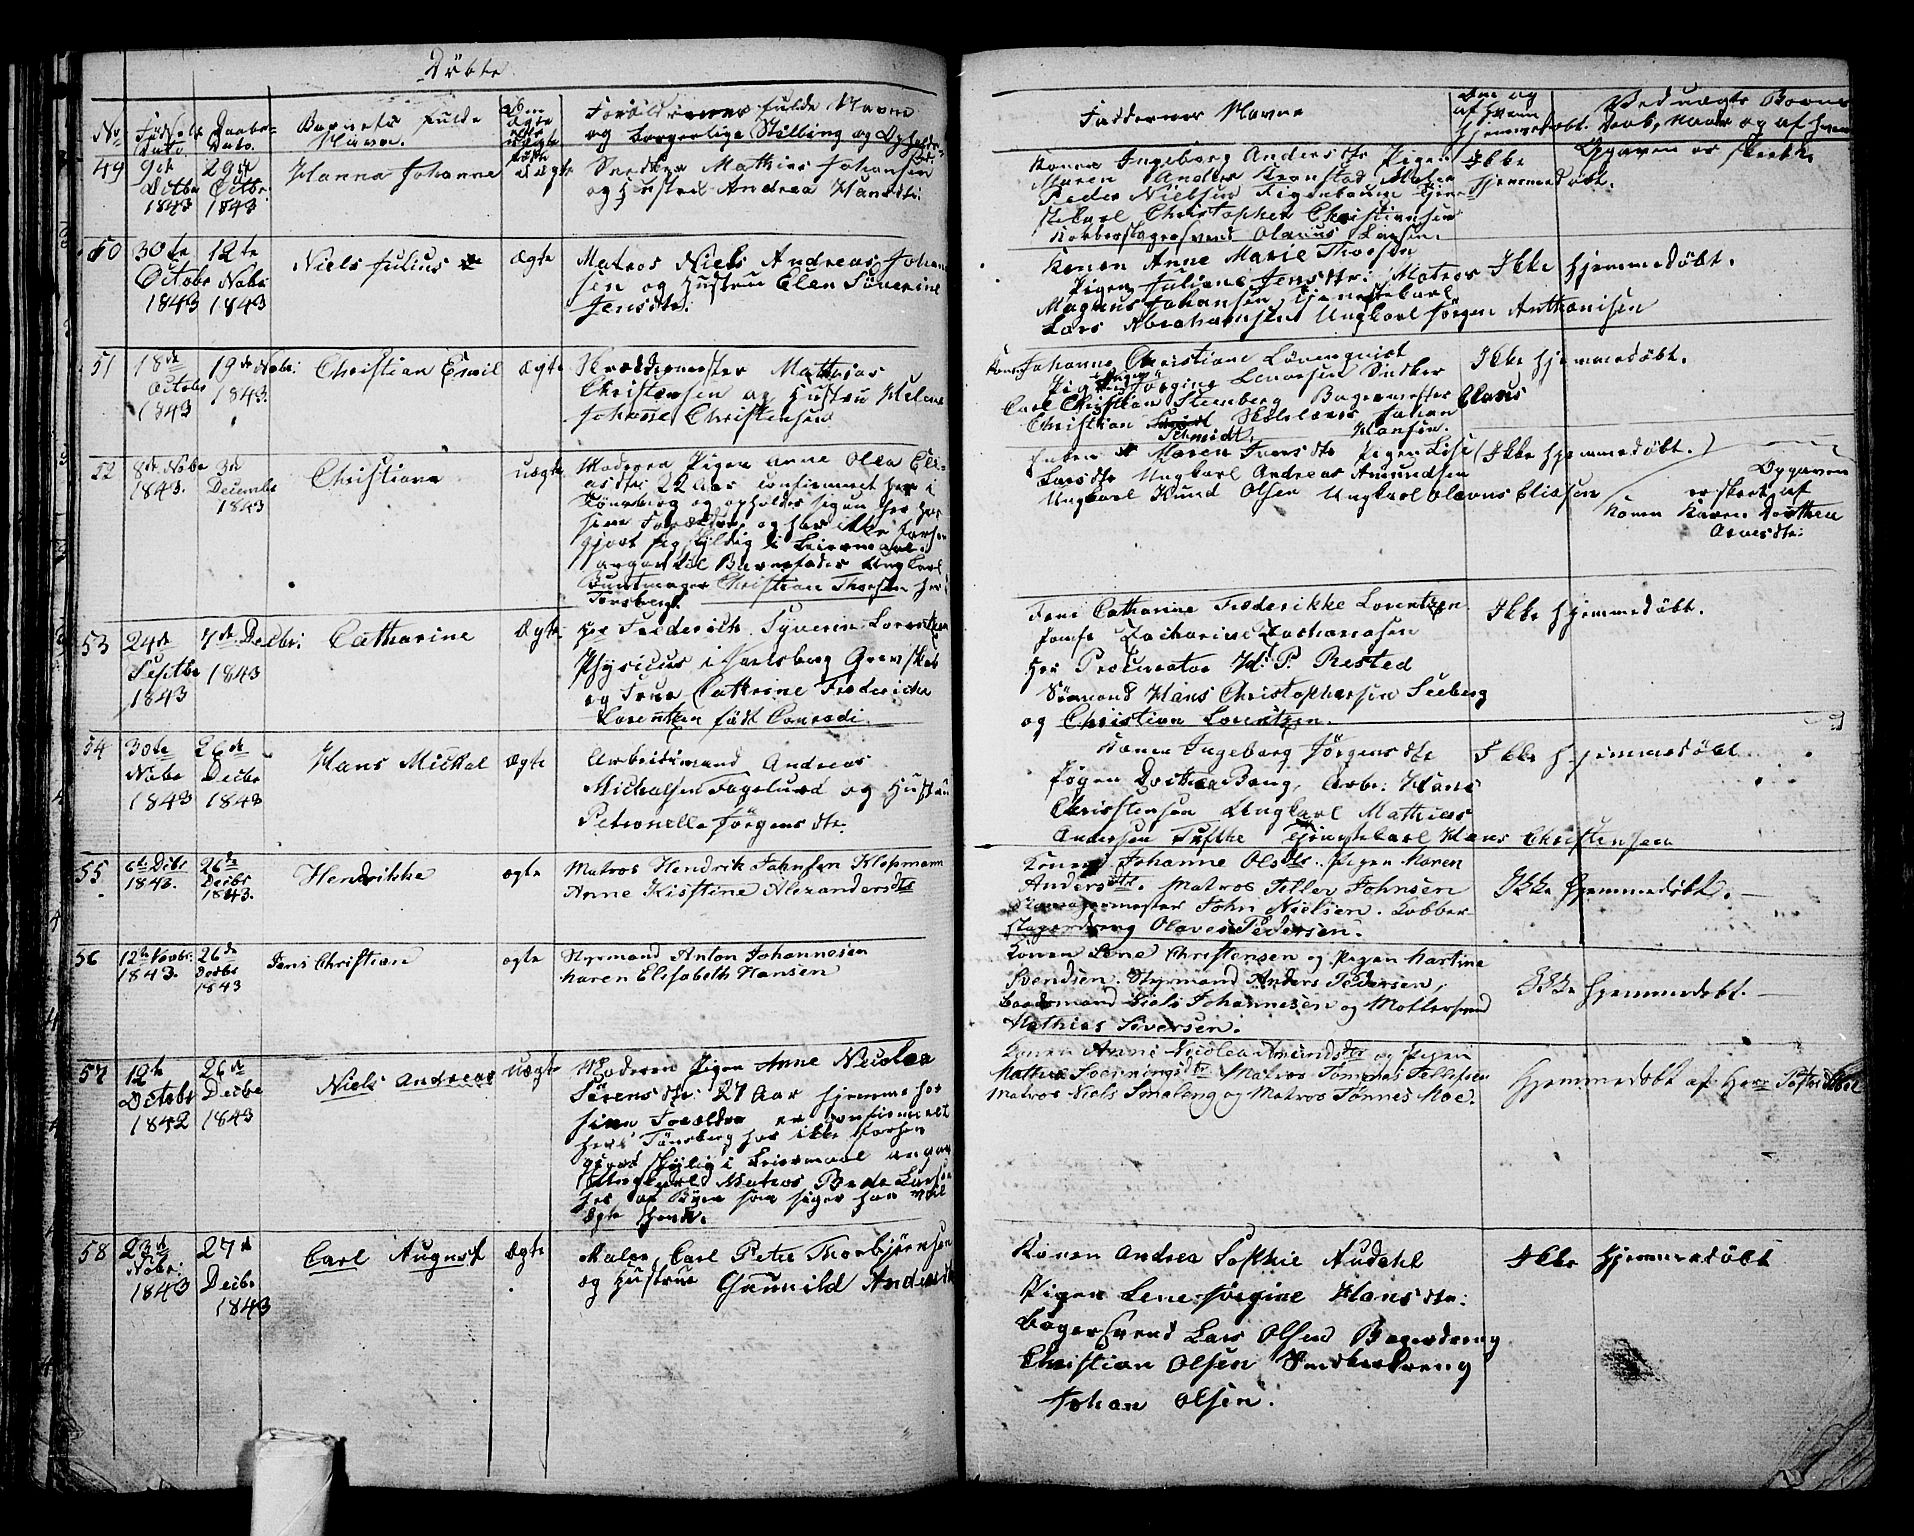 Döbte
No
Fødsels Dato.
Daabs- Dato.
Barnets fulde Navn.
Om Ægte eller uægte født
Forældrenes fulde Navne
og borgerlige Stilling og Opholds-
Faddernes Navne
Om og af hvem hjemmedöbt.
Ved uægte Börns Daab, naar og af hvem
49
9de Octbr 1843
29de Octbr 1843
Hanna Johanne
Ægte
Snedker Mathias Johansen
og Hustru Andrea Hansdtr:
Konen Ingeborg Andersdtr Pigen
Maren
Peder Nielsen
Carl Christopher Christiansen
Kobberslagersvend Olavus Larsen.
Ikke hjemmedöbt.
Opgaven er skeet
50
30te Octobr 1843
12te Nobr 1843
Niels Julius
Ægte
Matros Niels Andreas Johan
sen og Hustru Elen Söverine
Jensdtr:
Konen Anne Marie Thorsen
Pigen Juliane Jensdtr: Matros
Magnus Johansen, Tjenestekarl
Lars Abrahamsen Ungkarl Jörgen Anthonisen
Ikke hjemmedöbt.
51
18de Octobr 1843
19de Nobr: 1843.
Christian Emil
Ægte
Skræddermester Mathias
Christensen og Hustru Helene
Johanne Christensen
Konen Johanne Christiane Lövenquist
Pigen Jörgine Larsen Snedker
Carl Christian Steenberg Bagermester Claus
Christian Schmidt Johan
Hansen.
Ikke hjemmedöbt.
52
8de Nobr 1843.
3de Decembr 1843
Christiane
uægte
Moderen Pigen Anne Olea Eli-
asdtr: 22 Aar confirmeret her i
Tönsberg og opholder sig nu her hos
sine Forældre og har ikke forhen
gjort sig skyldig i Leiermaal.
angav til Barnefader Ungkarl
Buntmager Christian Thorsen her i
Tönsberg.
Enken Maren Iversdtr Pigen Lise
Larsdtr Ungkarl Andreas Amundsen
Ungkarl Knud Olsen Ungkarl Olavus Eliassen
(Ikke hjemmedöbt.)
Opgaven
er skeet af
Konen Karen Dorthea
53
24de Septbr 1843
7de Decbr: 1843
Catharine
Ægte
Hr Frederich Syverin Lorentzen
Physicus i Jarlsberg Grevskab
og Frue Cathrine Frederiche
Lorentzen født Conradi.
Frue Catharine Frederikke Lorentzen
Jomfr Zacharine Zachariasen
Hr Procurator H. P. Rested
Sömand Hans Christophersen Seeberg
og Christian Lorentzen.
Ikke hjemmedöbt.
54
30te Nobr 1843
26de Decbr 1843
Hans Mickal
Ægte
Arbeidsmand Andreas
Michalsen Fogelund og Hustru
Petronelle Jörgensdtr.
Konen Ingeborg Jörgensdtr
Pigen Dorthea Bang, Arbr: Hans
Christensen Ungkarl Mathias
Andersen Tufthe Tjenestekarl Hans Christensen
Ikke hjemmedöbt
55
6te Decbr 1843.
26de Decbr 1843.
Hendrikke
ægte
Matros Hendrik Johnsen Klopmann
Anne Kisstine Alexandersdtr
Konen Johanne Olsdtr. Pigen Maren
Andersdtr. Matros Tellev Johnsen
John Nielsen. Kobber-
slagerdreng Olaves Pedersen.
Ikke hjemmedöbt.
56
12te Novbr: 1843.
26de Decbr 1843
Jens Christian
ægte
Styrmand Anton Johannesen
Karen Elisabeth Hansen
Konen Lene Christensen og Pigen Martine
Svendsen. Styrmand Anders Pedersen,
Baadsmand Niels Johannesen og Möllersvend
Mathias Siversen.
Ikke hjemmedöbt.
57
12te Octobr 1842
26de Decbr 1843
Niels Andreas
Uægte
Moderen Pigen Anne Nicolea
Sörensdtr: 27 Aar hjemme hos
sine Forældre er confirmeret
her i Tönsberg har ikke forhen
gjort skyldig i Leiermaal angav
Ungkarl Matros Larsen
her af Byen som siger han vil
ægte hende.
Konen Anne Nicolea Amundsdtr og Pigen
Mathea Matros Tönnes Tellefsen
Matros Niels Smaleng og Matros Tönnes Moe.
Hjemmedöbt af
58
23de Nobr: 1843
27de Decbr 1843
Carl August
Ægte
Maler Carl Peter Thorbjörnsen
og Hustrue Gunnild Andersdtr
Konen Andrea Sophie Audahl
Pigen Lene Jörgine Hansdtr:
Bagersvend Lars Olsen Bagerdreng
Christian Olsen Snedkerdreng
Johan Olsen.
Ikke hjemmedöbt